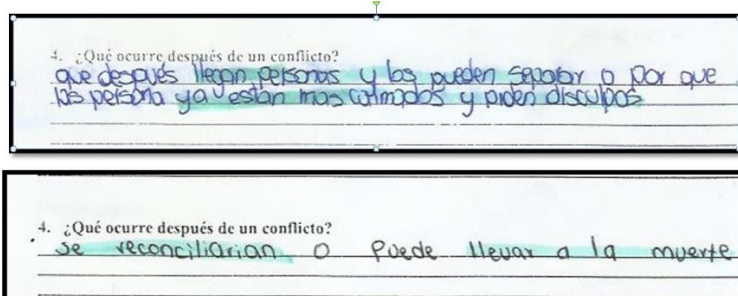 4. ¿Qué ocurre después de un conflicto?
que después llegan personas y los pueden separar o por que
las persona ya están mas calmados y piden disculpas
4. ¿Qué ocurre después de un conflicto?
se reconciliarian o puede llevar a la muerte